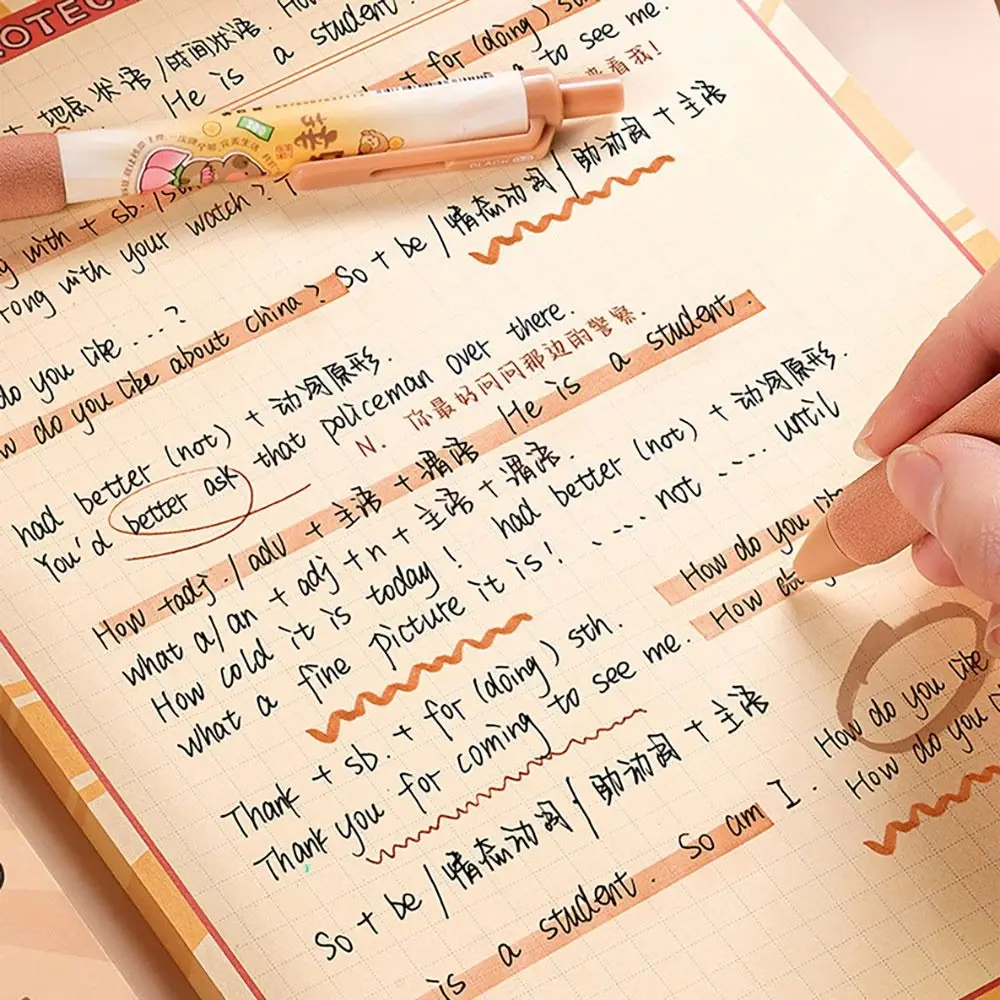 OTEC
地点状语 /时间状语. Ho
He is a student.
for (doing) s
to see me.
看我!
BLACK
ng with + sb. /s
rong with your watch?
So + be / 情态动词 / 助动词 + 主语
do you like ....?
w do you like about china?
had better (not) + 动词原形.
You'd better ask that policeman over there.
N. 你最好问问那边的警察.
How tadj. / adv + 主语 + 谓语 He is a student.
what a/an + adj +n + 主语 + 谓语.
had better (not) + 动词原形.
How cold it is today! .... not .... until
what a fine picture it is!
How do you
How
Thank + sb. + for (doing) sth.
Thank you for coming to see me.
How do you like
How do you
So + be / 情态动词 / 助动词 + 主语
is a student. So am I.